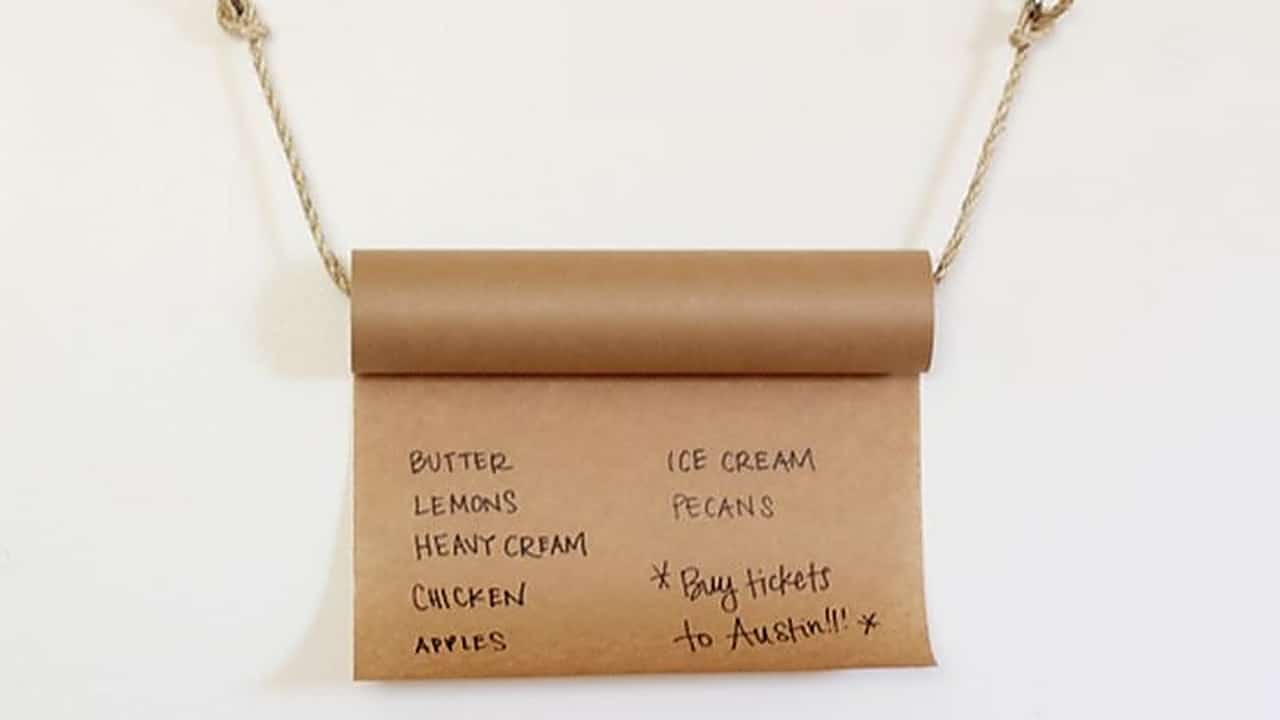 BUTTER
LEMONS
HEAVY CREAM
CHICKEN
APPLES
ICE CREAM
PECANS
* Buy tickets
to Austin!!! *